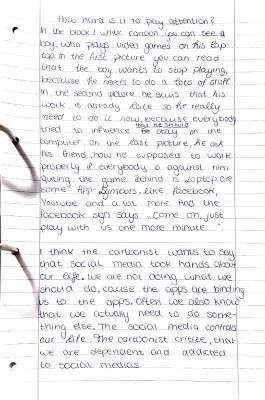 How hard is it to pay attention?
In the black / white cartoon, you can see a
boy, who plays video games on his lap-
top. In the first picture you can read
that the boy wants to stop playing,
because he needs to do a lots of stuff.
In the second picture he sais that his
work is already late so he really
need to do it now, because everybody
that he should
tried to influence to stay on the
computer. On the last picture, he ask
his friend, how he supposed to work
properly if everybody is against him
During the game behind is laptop are
some App-Symbols. Like facebook,
Youtube and a lot more. And the
facebook sign says „Come on, just
play with us one more minute".
I think the cartoonist wants to say
that social media took hands about
our life. We are not doing what we
should do, cause the apps are binding
us to the apps. Often we also know
that we actually need to do some-
thing else. The social media controls
our life. The cartoonist critize, that
we are dependent and addicted
to social medias.